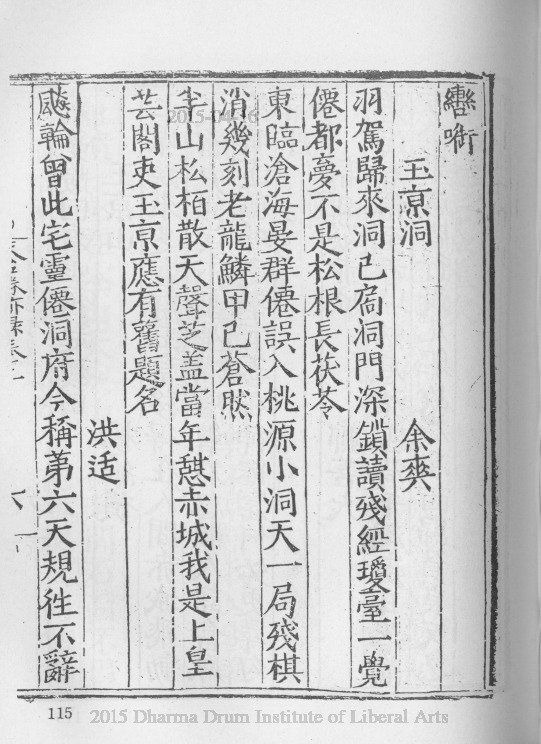 轡衘
玉京洞　余爽
羽駕歸來洞已扃洞門深鎖讀殘經瓊臺一覺
僊都夢不是松根長茯苓
東臨滄海晏群僊誤入桃源小洞天一局殘棋
消幾刻老龍鱗甲已蒼然
羊山松栢散天聲芝盖當年憇赤城我是上皇
芸閣吏玉京應有舊題名
洪适
飈輪曾此宅靈僊洞府今稱第六天規徃不辭
六
115
2015 Dharma Drum Institute of Liberal Arts